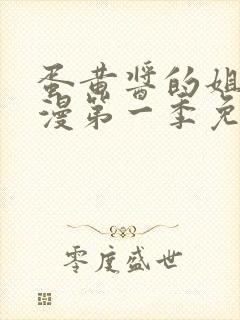 蛋黄酱的姐
漫第一季免
零度盛世